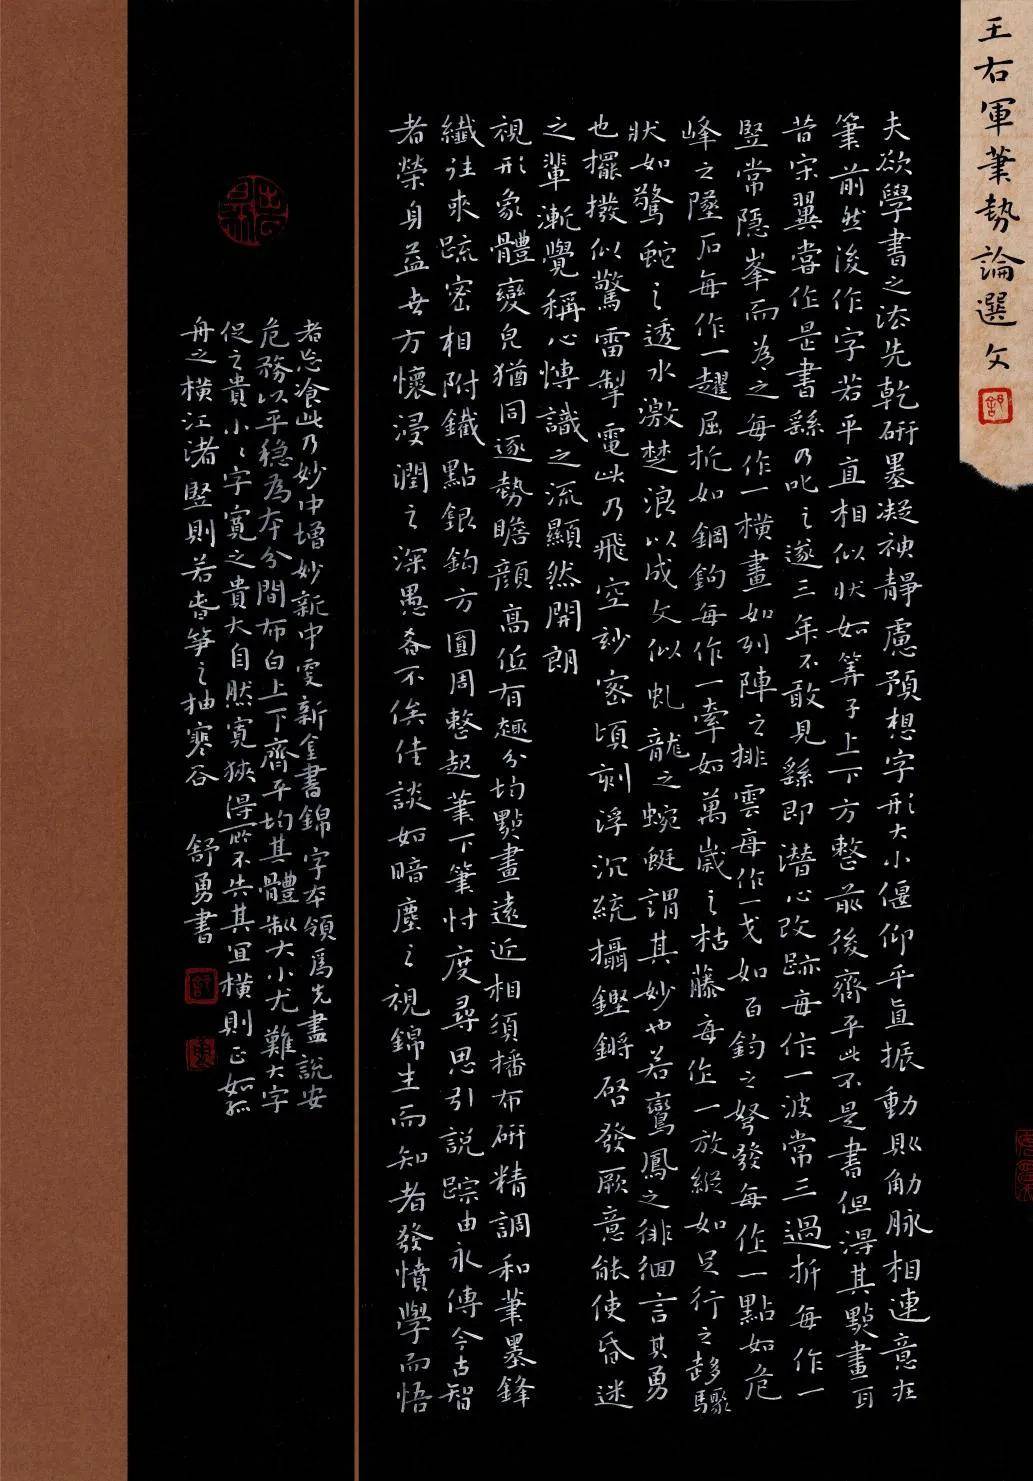 王右軍筆勢論選文
夫欲學書之法先乾研墨凝神靜慮預想字形大小偃仰平直振動則筋脉相連意在
筆前然後作字若平直相似狀如筭子上下方整前後齊平此不是書但得其點畫耳
昔宋翼嘗作是書繇乃叱之遂三年不敢見繇即潛心改跡每作一波常三過折每作一
竪常隱峯而為之每作一橫畫如列陣之排雲每作一戈如百鈞之弩發每作一點如危
峰之墜石每作一趯屈折如鋼鉤每作一牽如萬歲之枯藤每作一放縱如足行之趍驟
狀如驚蛇之透水激楚浪以成文似虬龍之蜿蜒謂其妙也若鸞鳳之徘徊言其勇
也擺撥似驚雷掣電此乃飛空妙密頃刻浮沉統攝鏗鏘啓發厥意能使昏迷
之輩漸覺稱心愽識之流顯然開朗
視形象體變皃猶同逐勢瞻顏高低有趣分均點畫遠近相須播布研精調和筆墨鋒
纖往來疏密相附鐵點銀鉤方圓周整起筆下筆忖度尋思引說蹤由永傳今古智
者榮身益世方懷浸潤之深愚者不俟佳談如暗塵之視錦生而知者發憤學而悟
者忘飡此乃妙中增妙新中更新金書錦字本領爲先盡說安
危務以平穩為本分間布白上下齊平均其體制大小尤難大字
促之貴小小字寬之貴大自然寬狹得所不失其宜橫則正如孤
舟之橫江渚竪則若春笋之抽寒谷 舒勇書